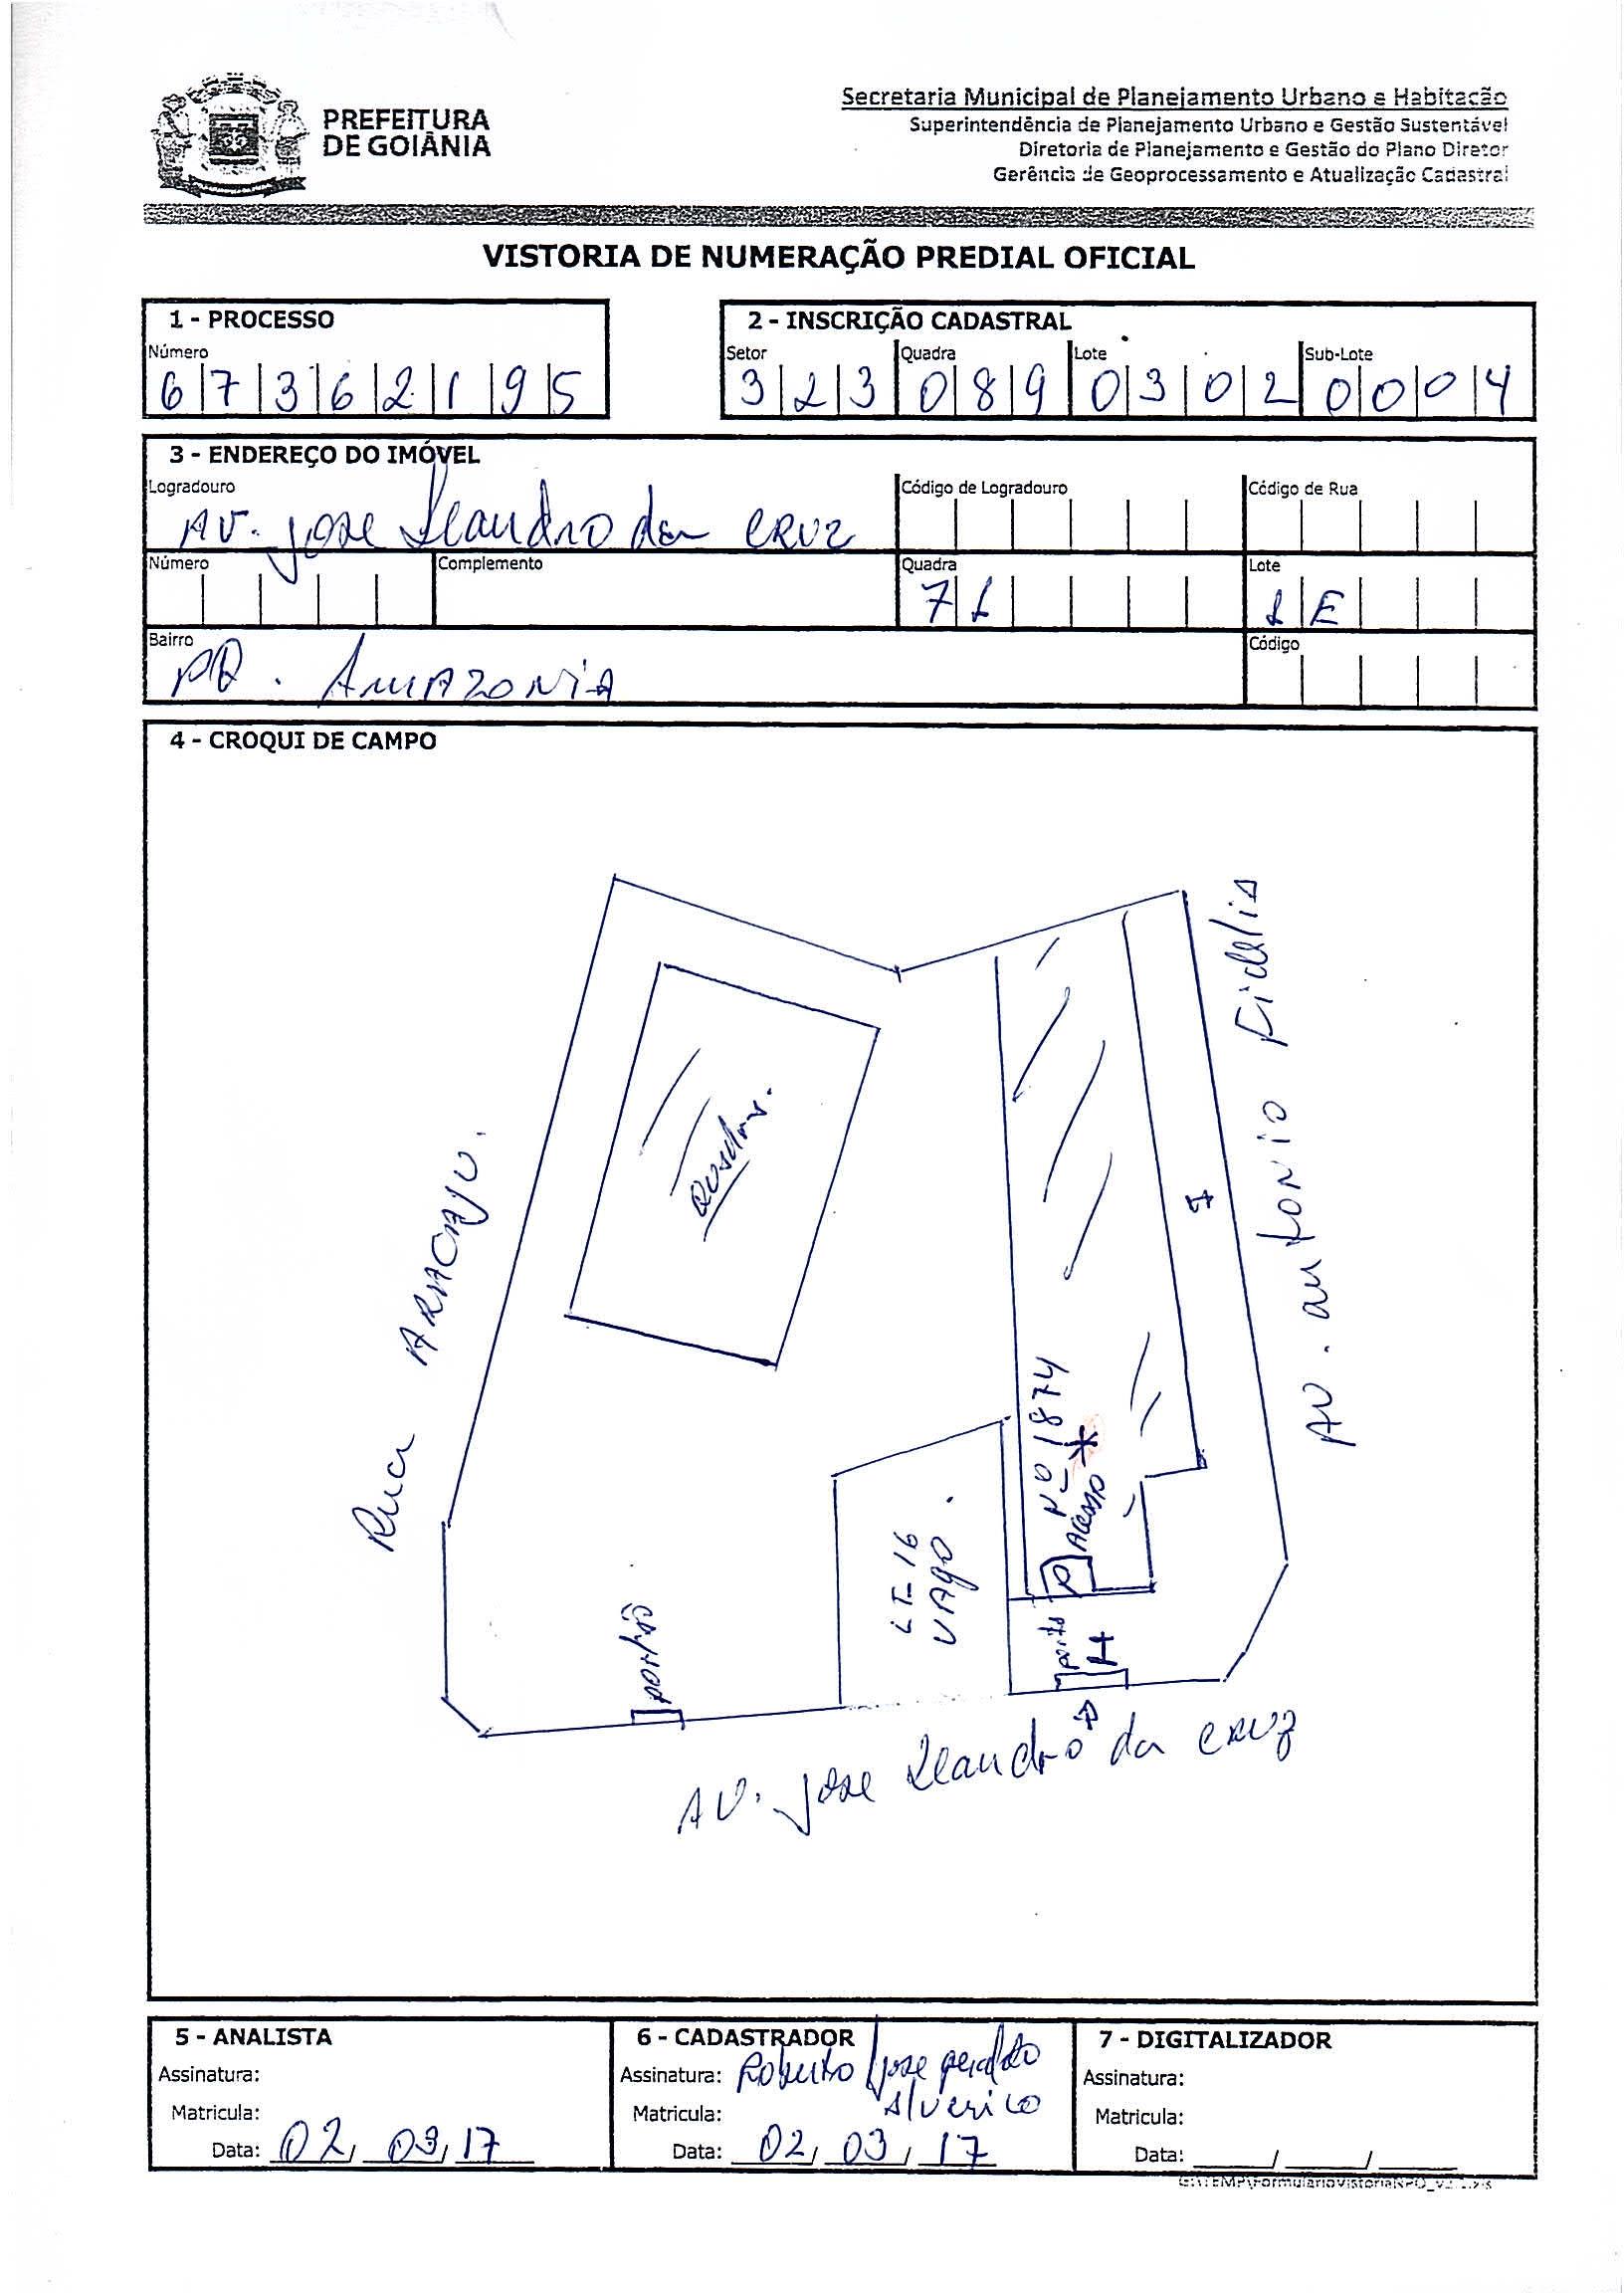 PREFEITURA
DE GOIÂNIA
Secretaria Municipal de Planejamento Urbano e Habitação
Superintendência de Planejamento Urbano e Gestão Sustentável
Diretoria de Planejamento e Gestão do Plano Diretor
Gerência de Geoprocessamento e Atualização Cadastral
VISTORIA DE NUMERAÇÃO PREDIAL OFICIAL
1 - PROCESSO
Número
6 7 3 6 2 1 9 5
2 - INSCRIÇÃO CADASTRAL
Setor Quadra Lote Sub-Lote
3 2 3 0 8 9 0 3 0 2 0 0 0 4
3 - ENDEREÇO DO IMÓVEL
Logradouro Código de Logradouro Código de Rua
AV. Jose Leandro da CRUZ
Número Complemento Quadra Lote
7 1 1 E
Bairro Código
PQ. AMAZONIA
4 - CROQUI DE CAMPO
Rua ARACAJU.
AV. antonio Fidelis
Nº 1874
Acesso *
LT-16
VAgo.
portão
AV. Jose Leandro da CRUZ
5 - ANALISTA
Assinatura:
Matricula:
Data: 02/03/17
6 - CADASTRADOR
Assinatura: Roberto / Jose geraldo
Matricula:
Data: 02/03/17
7 - DIGITALIZADOR
Assinatura:
Matricula:
Data: ___/___/___